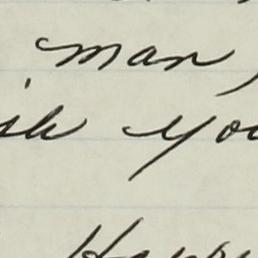 man,
ish you
Happy